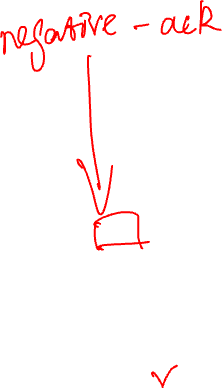 negative - ack